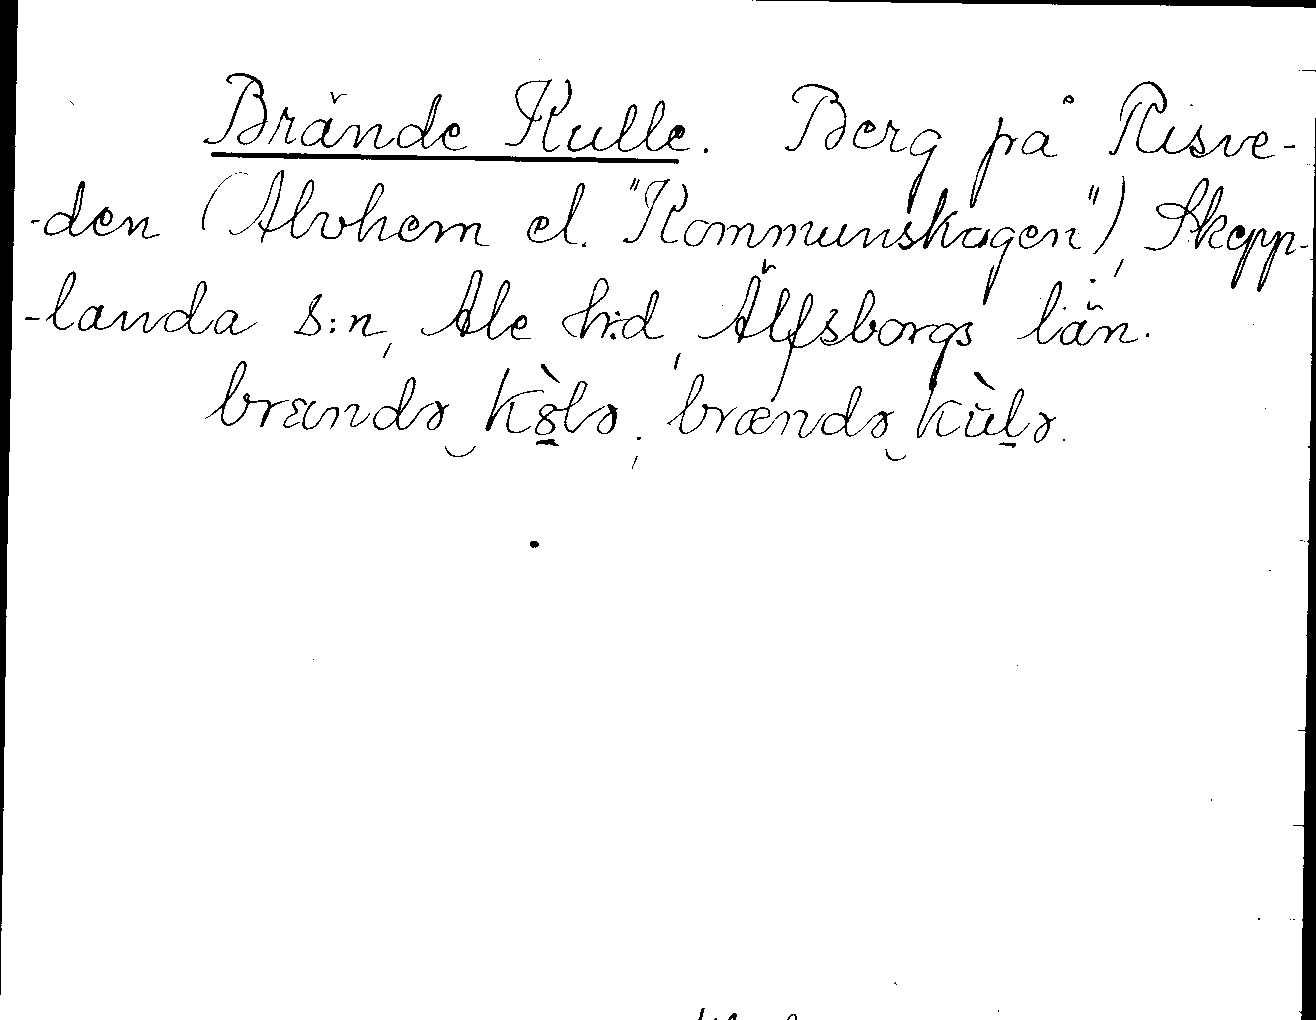 Brände Kulle. Berg på Risve-
-den (Alvhem el. "Kommunskogen"), Skepp-
-landa s:n, Ale h:d, Älfsborgs län.
brændə kɵ̀lə; brændə kùlə.